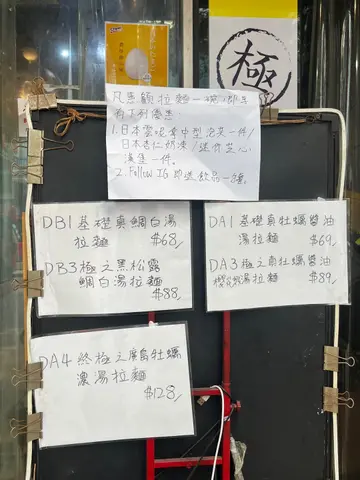 極
凡惠顧拉麵一碗,即享
有下列優惠:
1.日本雲呢拿中型泡芙一件/
日本杏仁奶凍/迷你芝心
漢堡一件。
2. Follow IG 即送飲品一罐。
DB1 基礎真鯛白湯
拉麵 $68/
DB3 極之黑松露
鯛白湯拉麵
$88/
DA1 基礎真牡蠣醬油
湯拉麵 $69/
DA3 極之真牡蠣醬油
湯拉麵 $89/
DA4 終極之廣島牡蠣
濃湯拉麵
$128/